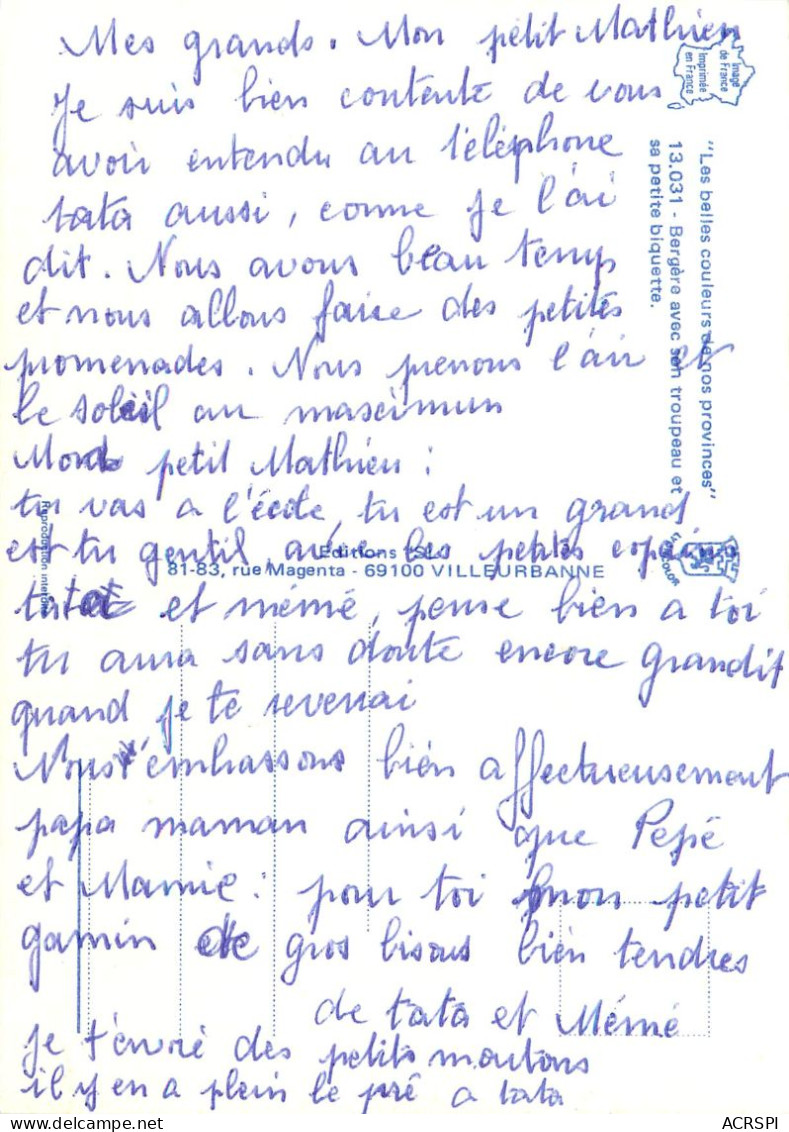 Mes grands. Mon petit Mathieu
Je suis bien contente de vous
avoir entendu au téléphone
tata aussi, comme je l'ai
dit. Nous avons beau temps
et nous allons faire des petites
promenades. Nous prenons l'air et
le soleil au maximum
Mon petit Mathieu :
tu vas a l'école, tu est un grand
est tu gentil, avec les petits copains
tata et mémé, pense bien a toi
tu aura sans doute encore grandit
quand je te reverrai
Nous t'embrassons bien affectueusement
papa maman ainsi que Pépé
et Mamie : pour toi mon petit
gamin de gros bisous bien tendres
de tata et Mémé
je t'envoie des petits moutons
il y en a plein le pré a tata
Image
de France
Imprimée
en France
"Les belles couleurs de nos provinces"
13.031 - Bergère avec son troupeau et
sa petite biquette.
Editions
81-83, rue Magenta - 69100 VILLEURBANNE
Reproduction
ACRSPI